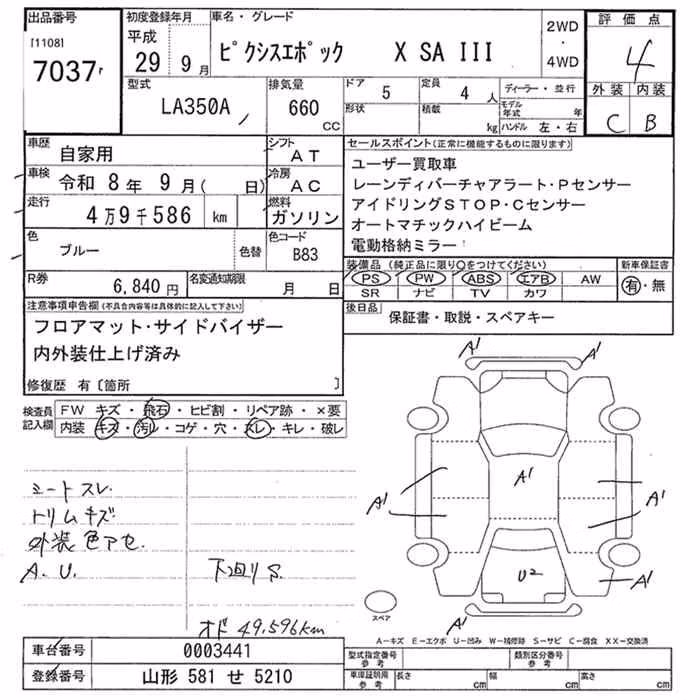 出品番号
[1108]
7037
初度登録年月
平成
29年 9月
車名・グレード
ピクシスエポック X SA III
2WD
・
4WD
評価点
4
外装 内装
C B
型式
LA350A
排気量
660
CC
ドア
5
定員
4人
形状
積載
kg
ディーラー・並行
モデル年式 年
ハンドル 左・右
車歴
自家用
シフト
AT
車検
令和 8年 9月( 日)
冷房
AC
走行
4万9千586 km
燃料
ガソリン
色
ブルー
色替
色コード
B83
R券
6,840円
名変通知期限
月 日
セールスポイント(正常に機能するものに限ります)
ユーザー買取車
レーンディパーチャアラート・Pセンサー
アイドリングSTOP・Cセンサー
オートマチックハイビーム
電動格納ミラー
装備品(純正品に限り○をつけてください)
PS PW ABS エアB AW
SR ナビ TV カワ
新車保証書
有・無
後日品
保証書・取説・スペアキー
注意事項申告欄(不具合内容等は具体的に記入して下さい)
フロアマット・サイドバイザー
内外装仕上げ済み
修復歴 有〔箇所 〕
検査員
記入欄
FW キズ・飛石・ヒビ割・リペア跡・×要
内装 キズ・汚レ・コゲ・穴・スレ・キレ・破レ
シートスレ
トリムキズ
外装色アセ
A.U. 下廻りS
オド 49,596km
A1 A1
A1
A1 A1
U2 A1
A1
スペア
A-キズ E-エクボ U-凹み W-補修跡 S-サビ C-腐食 XX-交換済
車台番号
0003441
登録番号
山形 581 せ 5210
型式指定番号
参考
類別区分番号
参考
車庫証明用
参考
長さ cm
幅 cm
高さ cm